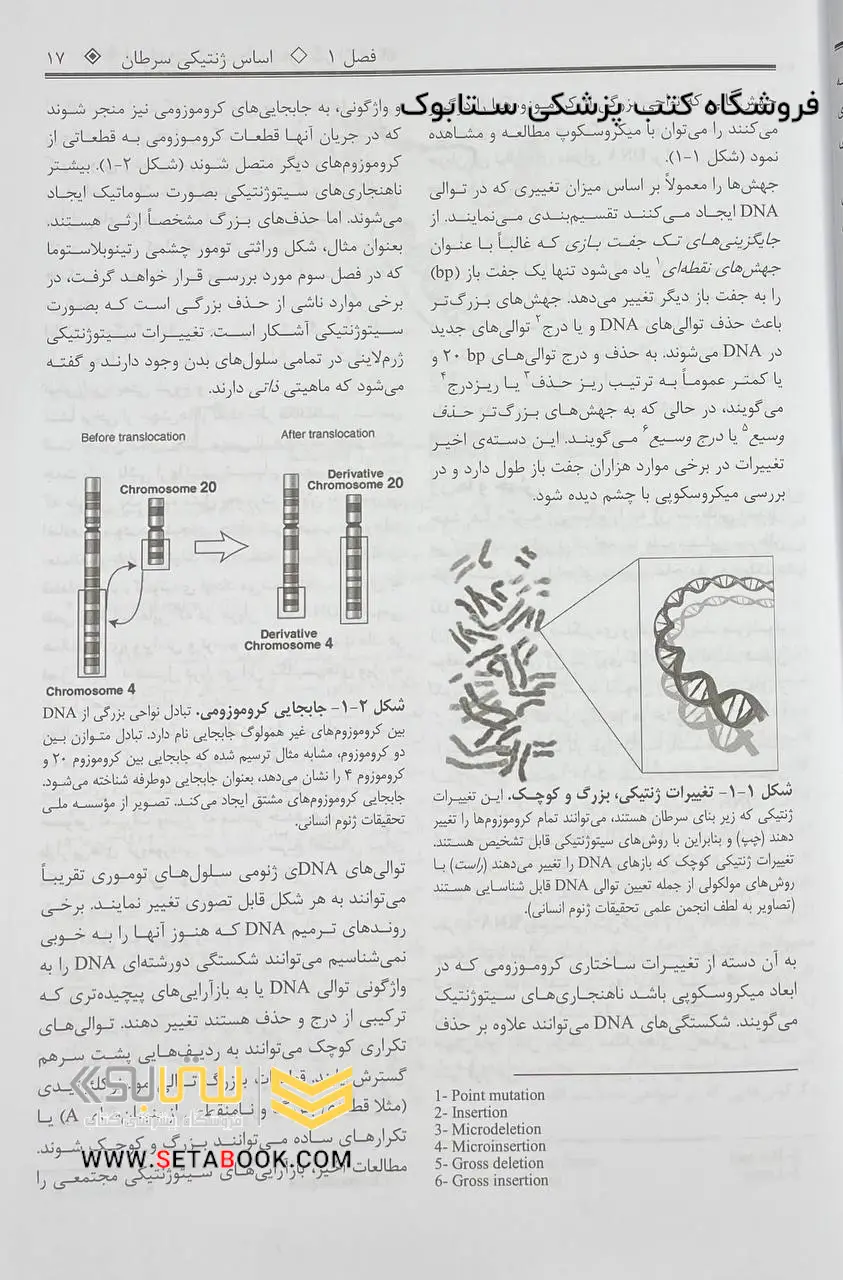 فصل ۱ ◇ اساس ژنتیکی سرطان ◈ ۱۷
فروشگاه کتب پزشکی ستابوک
می‌کنند را می‌توان با میکروسکوپ مطالعه و مشاهده
نمود (شکل ۱-۱).
جهش‌ها را معمولاً بر اساس میزان تغییری که در توالی
DNA ایجاد می‌کنند تقسیم‌بندی می‌نمایند. از
جایگزینی‌های تک جفت بازی که غالباً با عنوان
جهش‌های نقطه‌ای۱ یاد می‌شود تنها یک جفت باز (bp)
را به جفت باز دیگر تغییر می‌دهد. جهش‌های بزرگ‌تر
باعث حذف توالی‌های DNA و یا درج۲ توالی‌های جدید
در DNA می‌شوند. به حذف و درج توالی‌های ۲۰ bp و
یا کمتر عموماً به ترتیب ریز حذف۳ یا ریزدرج۴
می‌گویند، در حالی که به جهش‌های بزرگ‌تر حذف
وسیع۵ یا درج وسیع۶ می‌گویند. این دسته‌ی اخیر
تغییرات در برخی موارد هزاران جفت باز طول دارد و در
بررسی میکروسکوپی با چشم دیده شود.
شکل ۱-۱- تغییرات ژنتیکی، بزرگ و کوچک. این تغییرات
ژنتیکی که زیر بنای سرطان هستند، می‌توانند تمام کروموزوم‌ها را تغییر
دهند (چپ) و بنابراین با روش‌های سیتوژنتیکی قابل تشخیص هستند.
تغییرات ژنتیکی کوچک که بازهای DNA را تغییر می‌دهند (راست) با
روش‌های مولکولی از جمله تعیین توالی DNA قابل شناسایی هستند
(تصاویر به لطف انجمن علمی تحقیقات ژنوم انسانی).
به آن دسته از تغییرات ساختاری کروموزومی که در
ابعاد میکروسکوپی باشد ناهنجاری‌های سیتوژنتیک
می‌گویند. شکستگی‌های DNA می‌توانند علاوه بر حذف
1- Point mutation
2- Insertion
3- Microdeletion
4- Microinsertion
5- Gross deletion
6- Gross insertion
و واژگونی، به جابجایی‌های کروموزومی نیز منجر شوند
که در جریان آنها قطعات کروموزومی به قطعاتی از
کروموزوم‌های دیگر متصل شوند (شکل ۲-۱). بیشتر
ناهنجاری‌های سیتوژنتیکی بصورت سوماتیک ایجاد
می‌شوند. اما حذف‌های بزرگ مشخصاً ارثی هستند.
بعنوان مثال، شکل وراثتی تومور چشمی رتینوبلاستوما
که در فصل سوم مورد بررسی قرار خواهد گرفت، در
برخی موارد ناشی از حذف بزرگی است که بصورت
سیتوژنتیکی آشکار است. تغییرات سیتوژنتیکی
ژرم‌لاینی در تمامی سلول‌های بدن وجود دارند و گفته
می‌شود که ماهیتی ذاتی دارند.
Before translocation
After translocation
Chromosome 20
Derivative
Chromosome 20
Derivative
Chromosome 4
Chromosome 4
شکل ۲-۱- جابجایی کروموزومی. تبادل نواحی بزرگی از DNA
بین کروموزوم‌های غیر همولوگ جابجایی نام دارد. تبادل متوازن بین
دو کروموزوم، مشابه مثال ترسیم شده که جابجایی بین کروموزوم ۲۰ و
کروموزوم ۴ را نشان می‌دهد، بعنوان جابجایی دوطرفه شناخته می‌شود.
جابجایی کروموزوم‌های مشتق ایجاد می‌کند. تصویر از مؤسسه ملی
تحقیقات ژنوم انسانی.
توالی‌های DNAی ژنومی سلول‌های توموری تقریباً
می‌توانند به هر شکل قابل تصوری تغییر نمایند. برخی
روندهای ترمیم DNA که هنوز آنها را به خوبی
نمی‌شناسیم می‌توانند شکستگی دورشته‌ای DNA را به
واژگونی توالی DNA یا به بازآرایی‌های پیچیده‌تری که
ترکیبی از درج و حذف هستند تغییر دهند. توالی‌های
تکراری کوچک می‌توانند به ردیف‌هایی پشت سرهم
گسترش یابند.
تکرارهای ساده می‌توانند بزرگ و کوچک شوند.
مطالعات اخیر، بازآرایی‌های سیتوژنتیکی مجتمعی را
ستابوک
فروشگاه اینترنتی کتاب
WWW.SETABOOK.COM